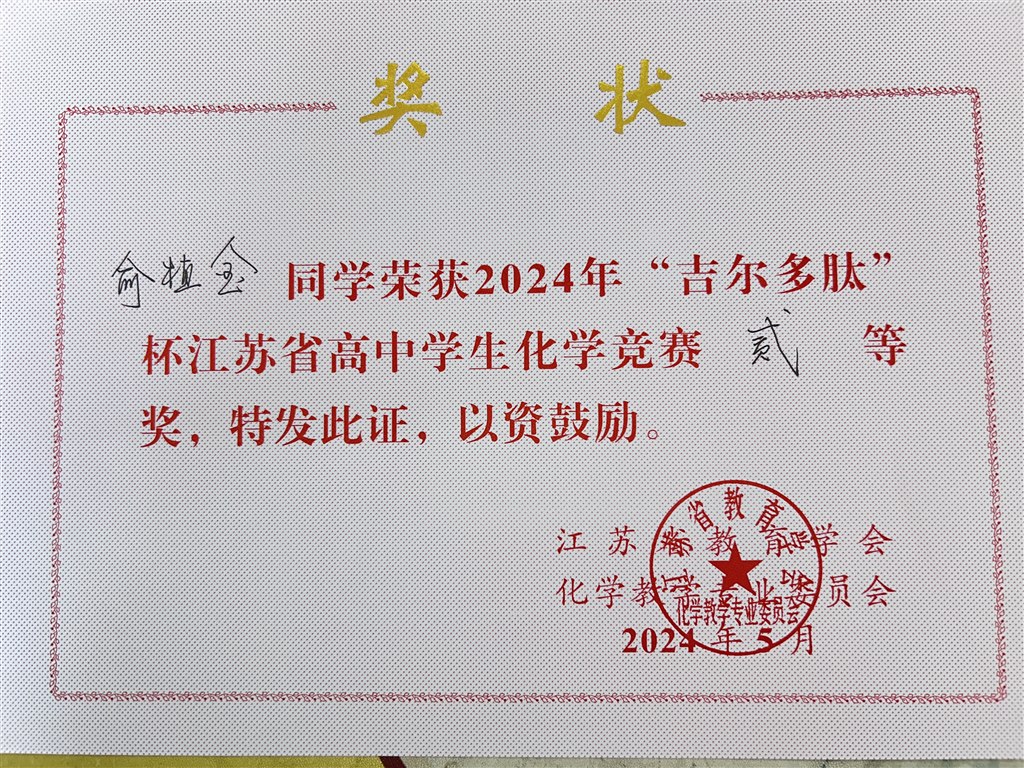 奖 状
俞植金 同学荣获2024年“吉尔多肽”
杯江苏省高中学生化学竞赛 贰 等
奖，特发此证，以资鼓励。
江苏省教育学会
化学教学专业委员会
2024 年 5 月
江苏省教育学会
化学教学专业委员会